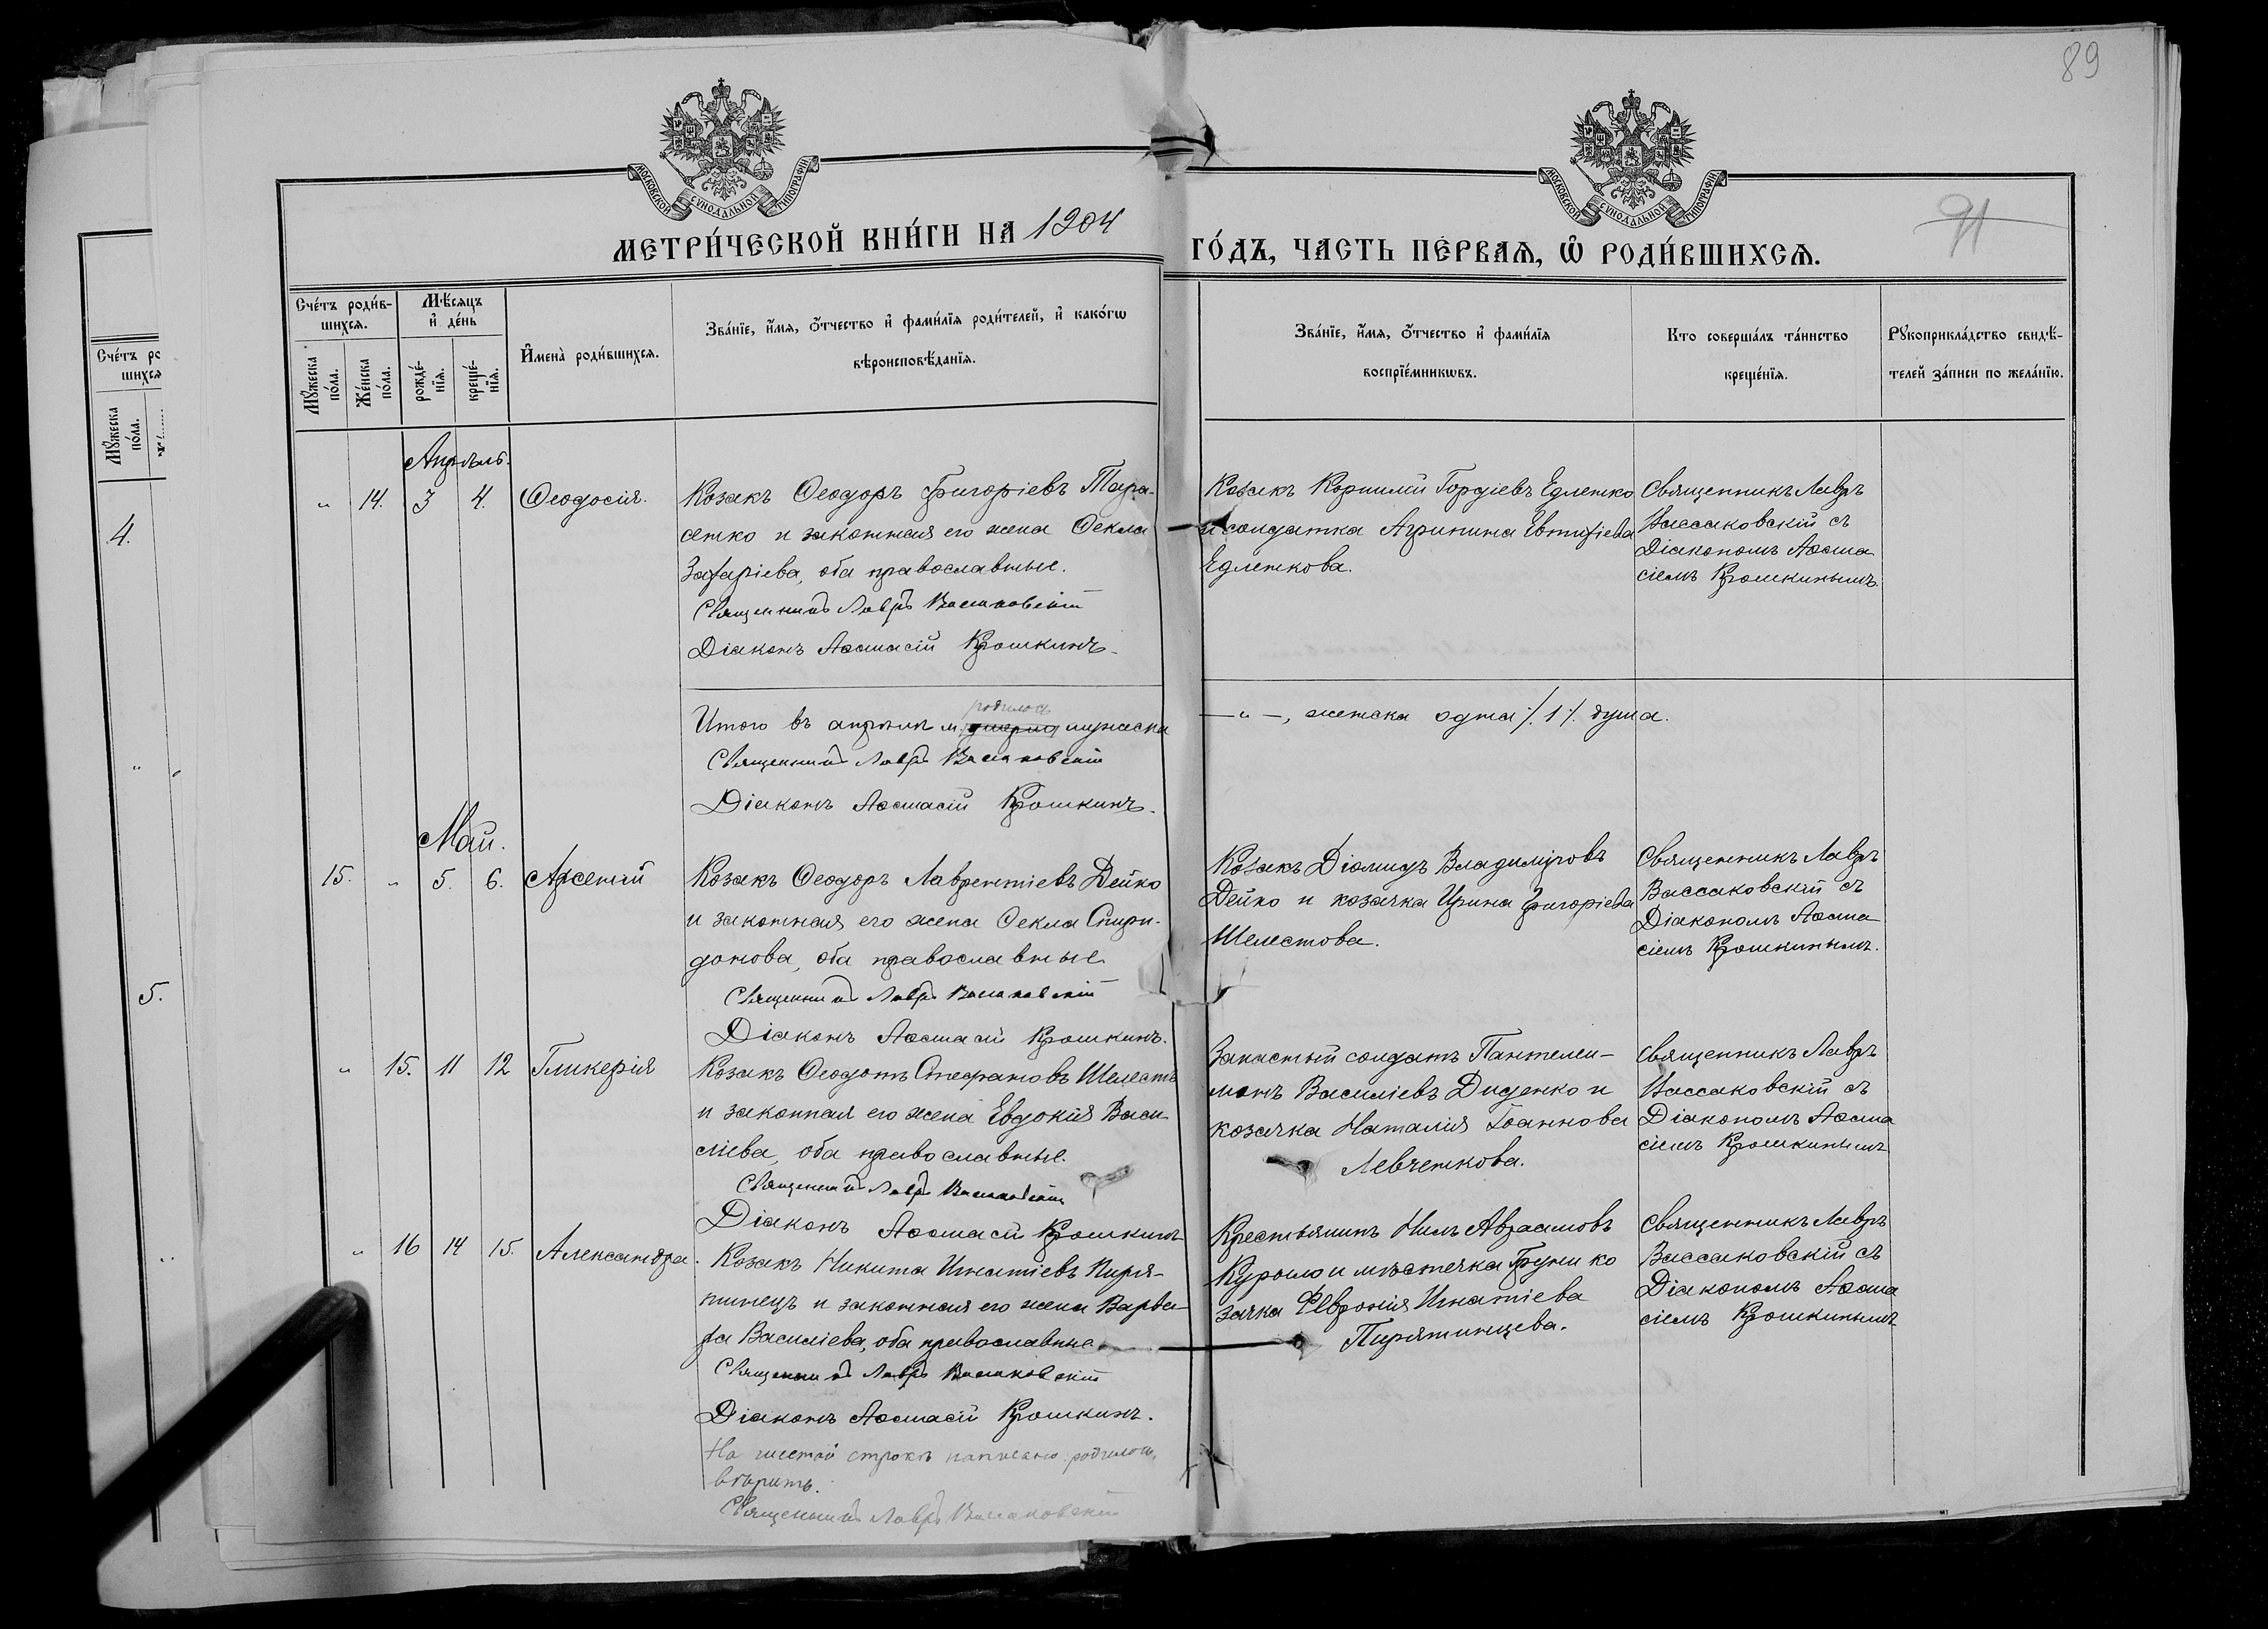 89
91
МОСКОВСКОЙ СУНОДАЛЬНОЙ ТИПОГРАФІИ
МОСКОВСКОЙ СУНОДАЛЬНОЙ ТИПОГРАФІИ
МЕТРИ́ЧЕСКОЙ КНИ́ГИ НА 1904
ГО́ДЪ, ЧАСТЬ ПЕ́РВАѦ, Ѡ҆ РОДИ́ВШИХСѦ.
Сче́тъ роди́в-
шихсѧ.
Мѣ́сѧцъ
и҆ де́нь
Мꙋ́жеска
по́ла.
Же́нска
по́ла.
рожде́-
нїѧ.
креще́-
нїѧ.
И҆мена̀ роди́вшихсѧ.
Зва́нїе, и҆́мѧ, ѻ҆́тчество и҆ фами́лїѧ роди́телей, и҆ како́гѡ
вѣроисповѣ́данїѧ.
Зва́нїе, и҆́мѧ, ѻ҆́тчество и҆ фами́лїѧ
воспрїе́мникѡвъ.
Кто соверша́лъ та́инство
креще́нїѧ.
Рꙋкоприкла́дство свидѣ́-
телей за́писи по жела́нїю.
Счетъ ро
шихсѧ
Мꙋ́жеска
по́ла.
4.
5.
Апрѣль.
" 14. 3 4. Ѳеодосія.
Козакъ Ѳеодоръ Григоріевъ Тара-
сенко и законная его жена Ѳекла
Захаріева, оба православные.
Священникъ Лавръ Вассаковскій
Діаконъ Аѳанасій Крошкинъ.
Козакъ Корнилій Гордіевъ Едленко
и солдатка Агрипина Евтифіева
Едленкова.
Священникъ Лавръ
Вассаковскій съ
Діакономъ Аѳана
сіемъ Крошкинымъ.
родилось
Итого въ апрѣлѣ м. умерло мужеска
— " —, женска одна /. 1 /. душа.
Священникъ Лавръ Вассаковскій
Діаконъ Аѳанасій Крошкинъ.
Май.
15. " 5. 6. Арсеній
Козакъ Ѳеодоръ Лаврентіевъ Дейко
и законная его жена Ѳекла Спири-
донова, оба православные.
Священникъ Лавръ Вассаковскій
Діаконъ Аѳанасій Крошкинъ.
Козакъ Діомидъ Владиміровъ
Дейко и козачка Ирина Григоріева
Шелестова.
Священникъ Лавръ
Вассаковскій съ
Діакономъ Аѳана
сіемъ Крошкинымъ.
" 15. 11 12 Гликерія
Козакъ Ѳеодотъ Стефановъ Шелестъ
и законная его жена Евдокія Васи-
ліева, оба православные.
Священникъ Лавръ Вассаковскій
Діаконъ Аѳанасій Крошкинъ
Запасный солдатъ Пантелеи-
монъ Василіевъ Диденко и
козачка Наталія Іоаннова
Левченкова.
Священникъ Лавръ
Вассаковскій съ
Діакономъ Аѳана
сіемъ Крошкинымъ
" 16 14 15. Александра.
Козакъ Никита Игнатіевъ Пиря-
тинецъ и законная его жена Варва-
ра Василіева, оба православные.
Священникъ Лавръ Вассаковскій
Діаконъ Аѳанасій Крошкинъ.
Крестьянинъ Нилъ Авраамовъ
Курыло и мѣстечка Груни ко
зачка Февронія Игнатіева
Пирятинцева.
Священникъ Лавръ
Вассаковскій съ
Діакономъ Аѳана
сіемъ Крошкинымъ
На шестой строкѣ написано родилось,
вѣрить.
Священникъ Лавръ Вассаковскій